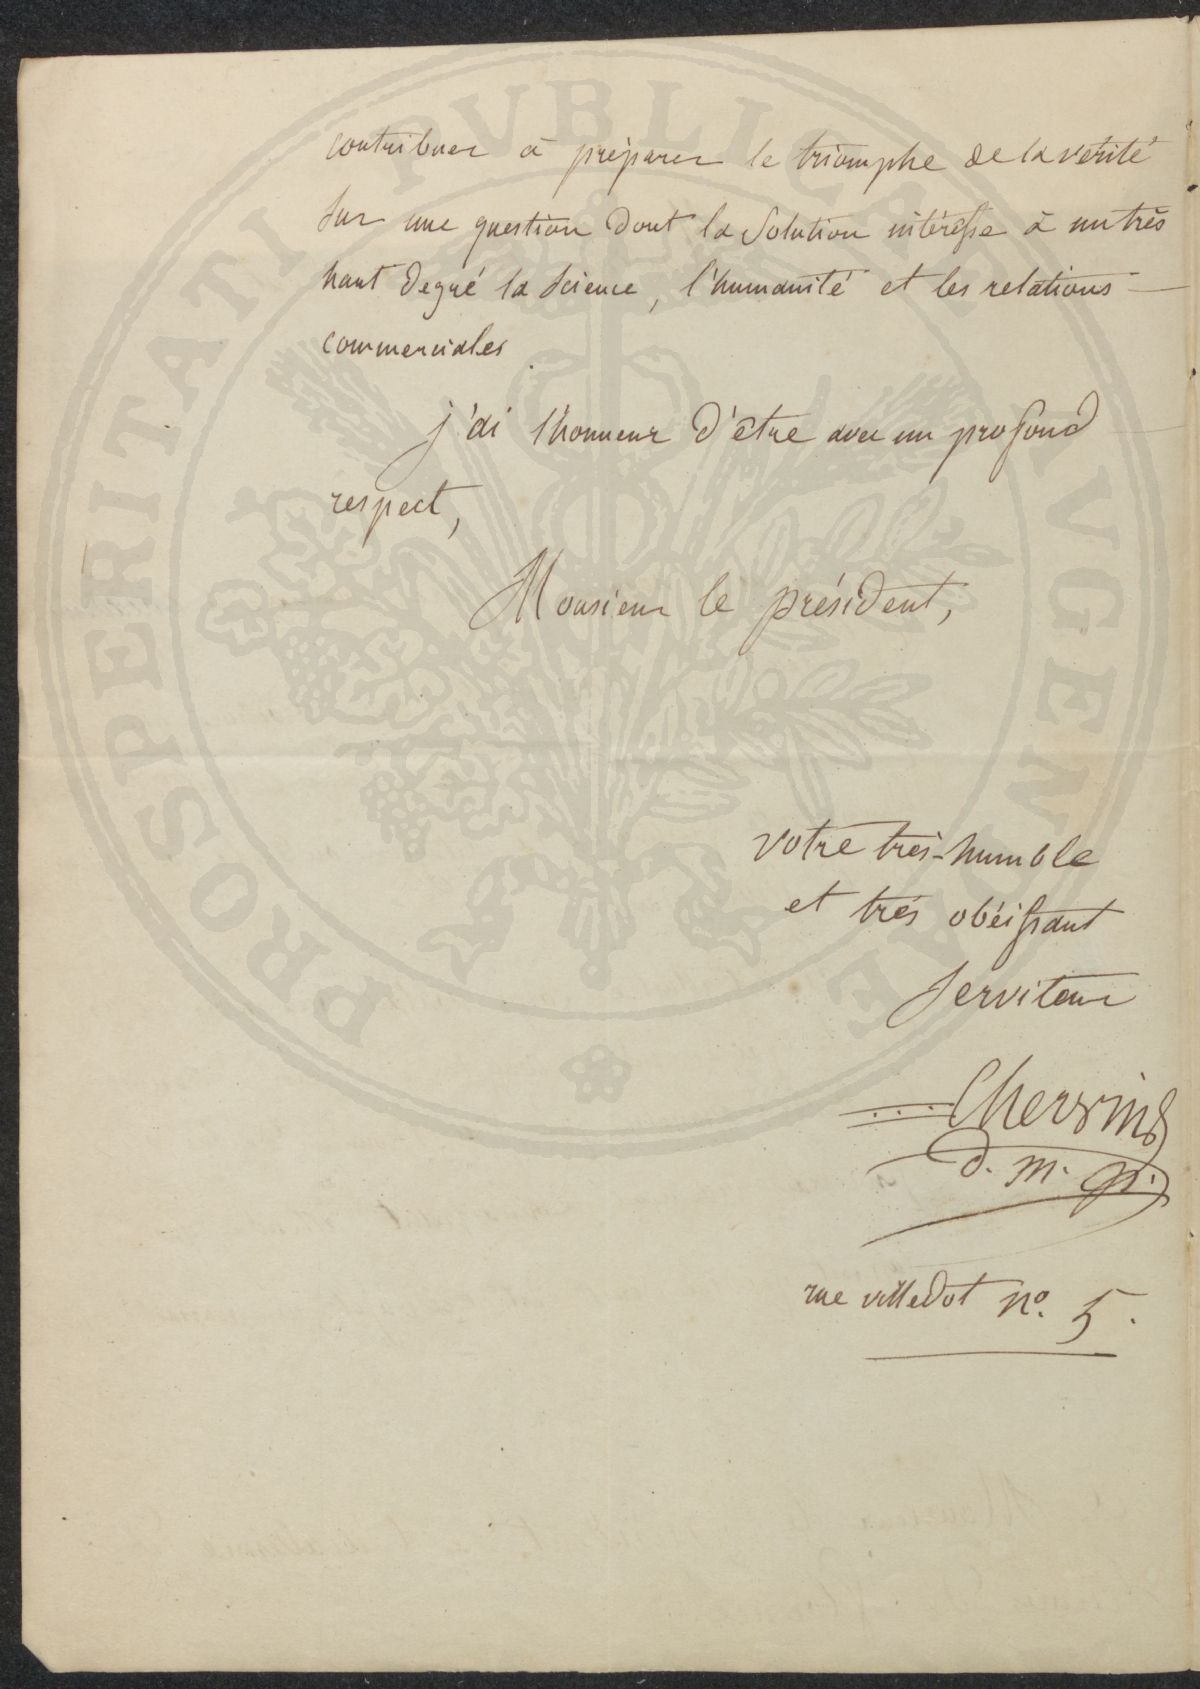 contribuer à préparer le triomphe de la vérité
sur une question dont la solution intéresse à un très
haut degré la science, l'humanité et les relations
commerciales.
j'ai l'honneur d'être avec un profond
respect,
Monsieur le président,
votre très-humble
et très obéissant
serviteur
Chervin
d. m. p.
rue villedot n°. 5.
PROSPERITATI PVBLICAE AVGENDAE